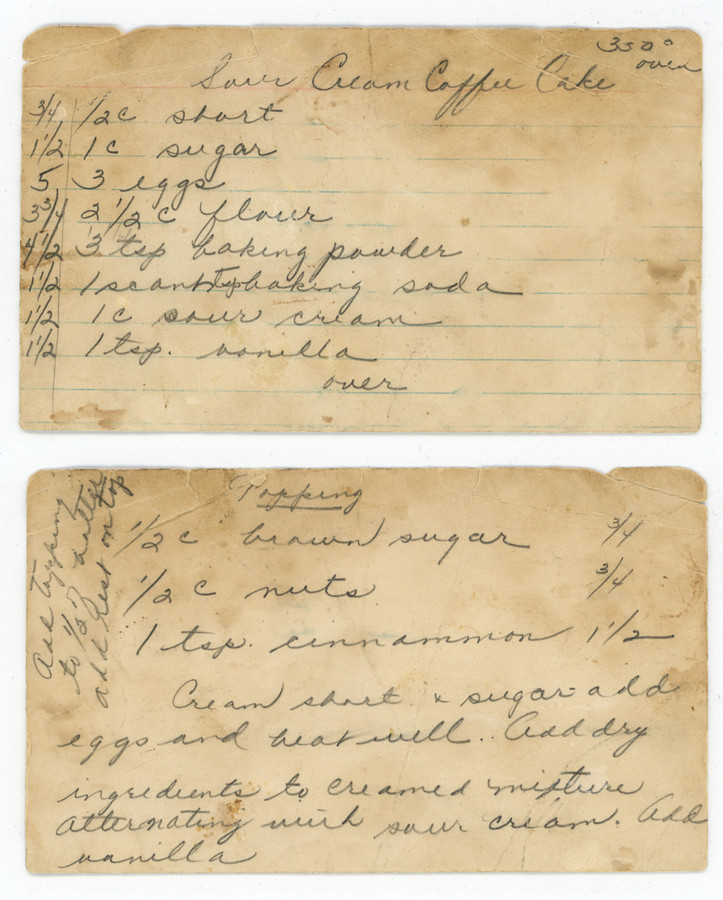 350°
oven
Sour Cream Coffee Cake
3/4 1/2 c short
1 1/2 1 c sugar
5 3 eggs
3 3/4 2 1/2 c flour
4 1/2 3 tsp baking powder
1 1/2 1 scant tsp baking soda
1 1/2 1 c sour cream
1 1/2 1 tsp. vanilla
over
Topping
1/2 c brown sugar 3/4
1/2 c nuts 3/4
1 tsp. cinnammon 1 1/2
Cream short & sugar - add
eggs and beat well.. Add dry
ingredients to creamed mixture
alternating with sour cream. Add
vanilla
Add topping
to 1/2 batter
add rest on top